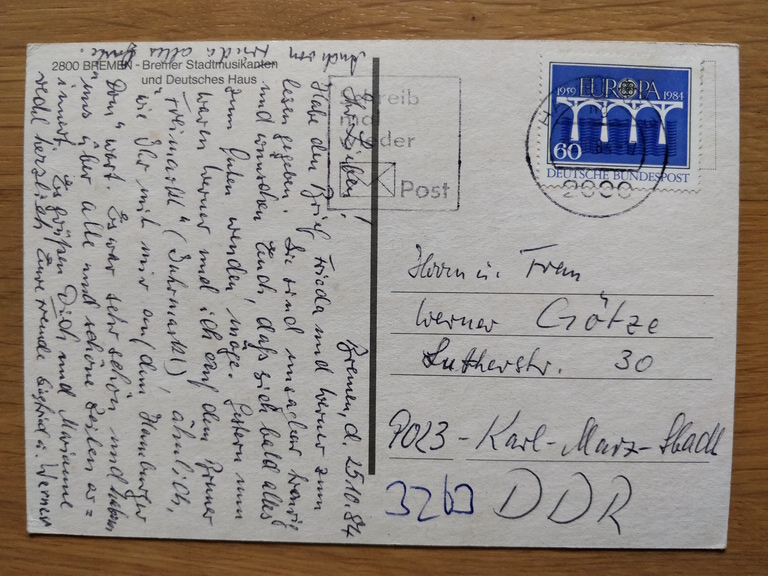 2800 BREMEN - Bremer Stadtmusikanten
und Deutsches Haus
Bremen, d. 25.10.84
Ihr Lieben!
Habe den Brief Frieda und Werner zum
lesen gegeben. Sie sind
und wünschen Euch, daß sich bald alles
zum Guten wenden möge. Gestern nun
waren Werner und ich auf dem Bremer
"Freimarkt" (Jahrmarkt), ähnlich,
wie Ihr mit mir auf dem Hamburger
"Dom" wart. Es war sehr schön und haben
uns über alle und schöne Zeiten er=
innert. Es grüßen Dich und Marianne
recht herzlich Eure Siegfried u. Werner
Auch von Frieda alles Gute.
Schreib
mal
wieder
Post
1959 EUROPA 1984
60
DEUTSCHE BUNDESPOST
2000
Herrn u. Frau
Werner Götze
Lutherstr. 30
9023 - Karl-Marx-Stadt
3263 DDR